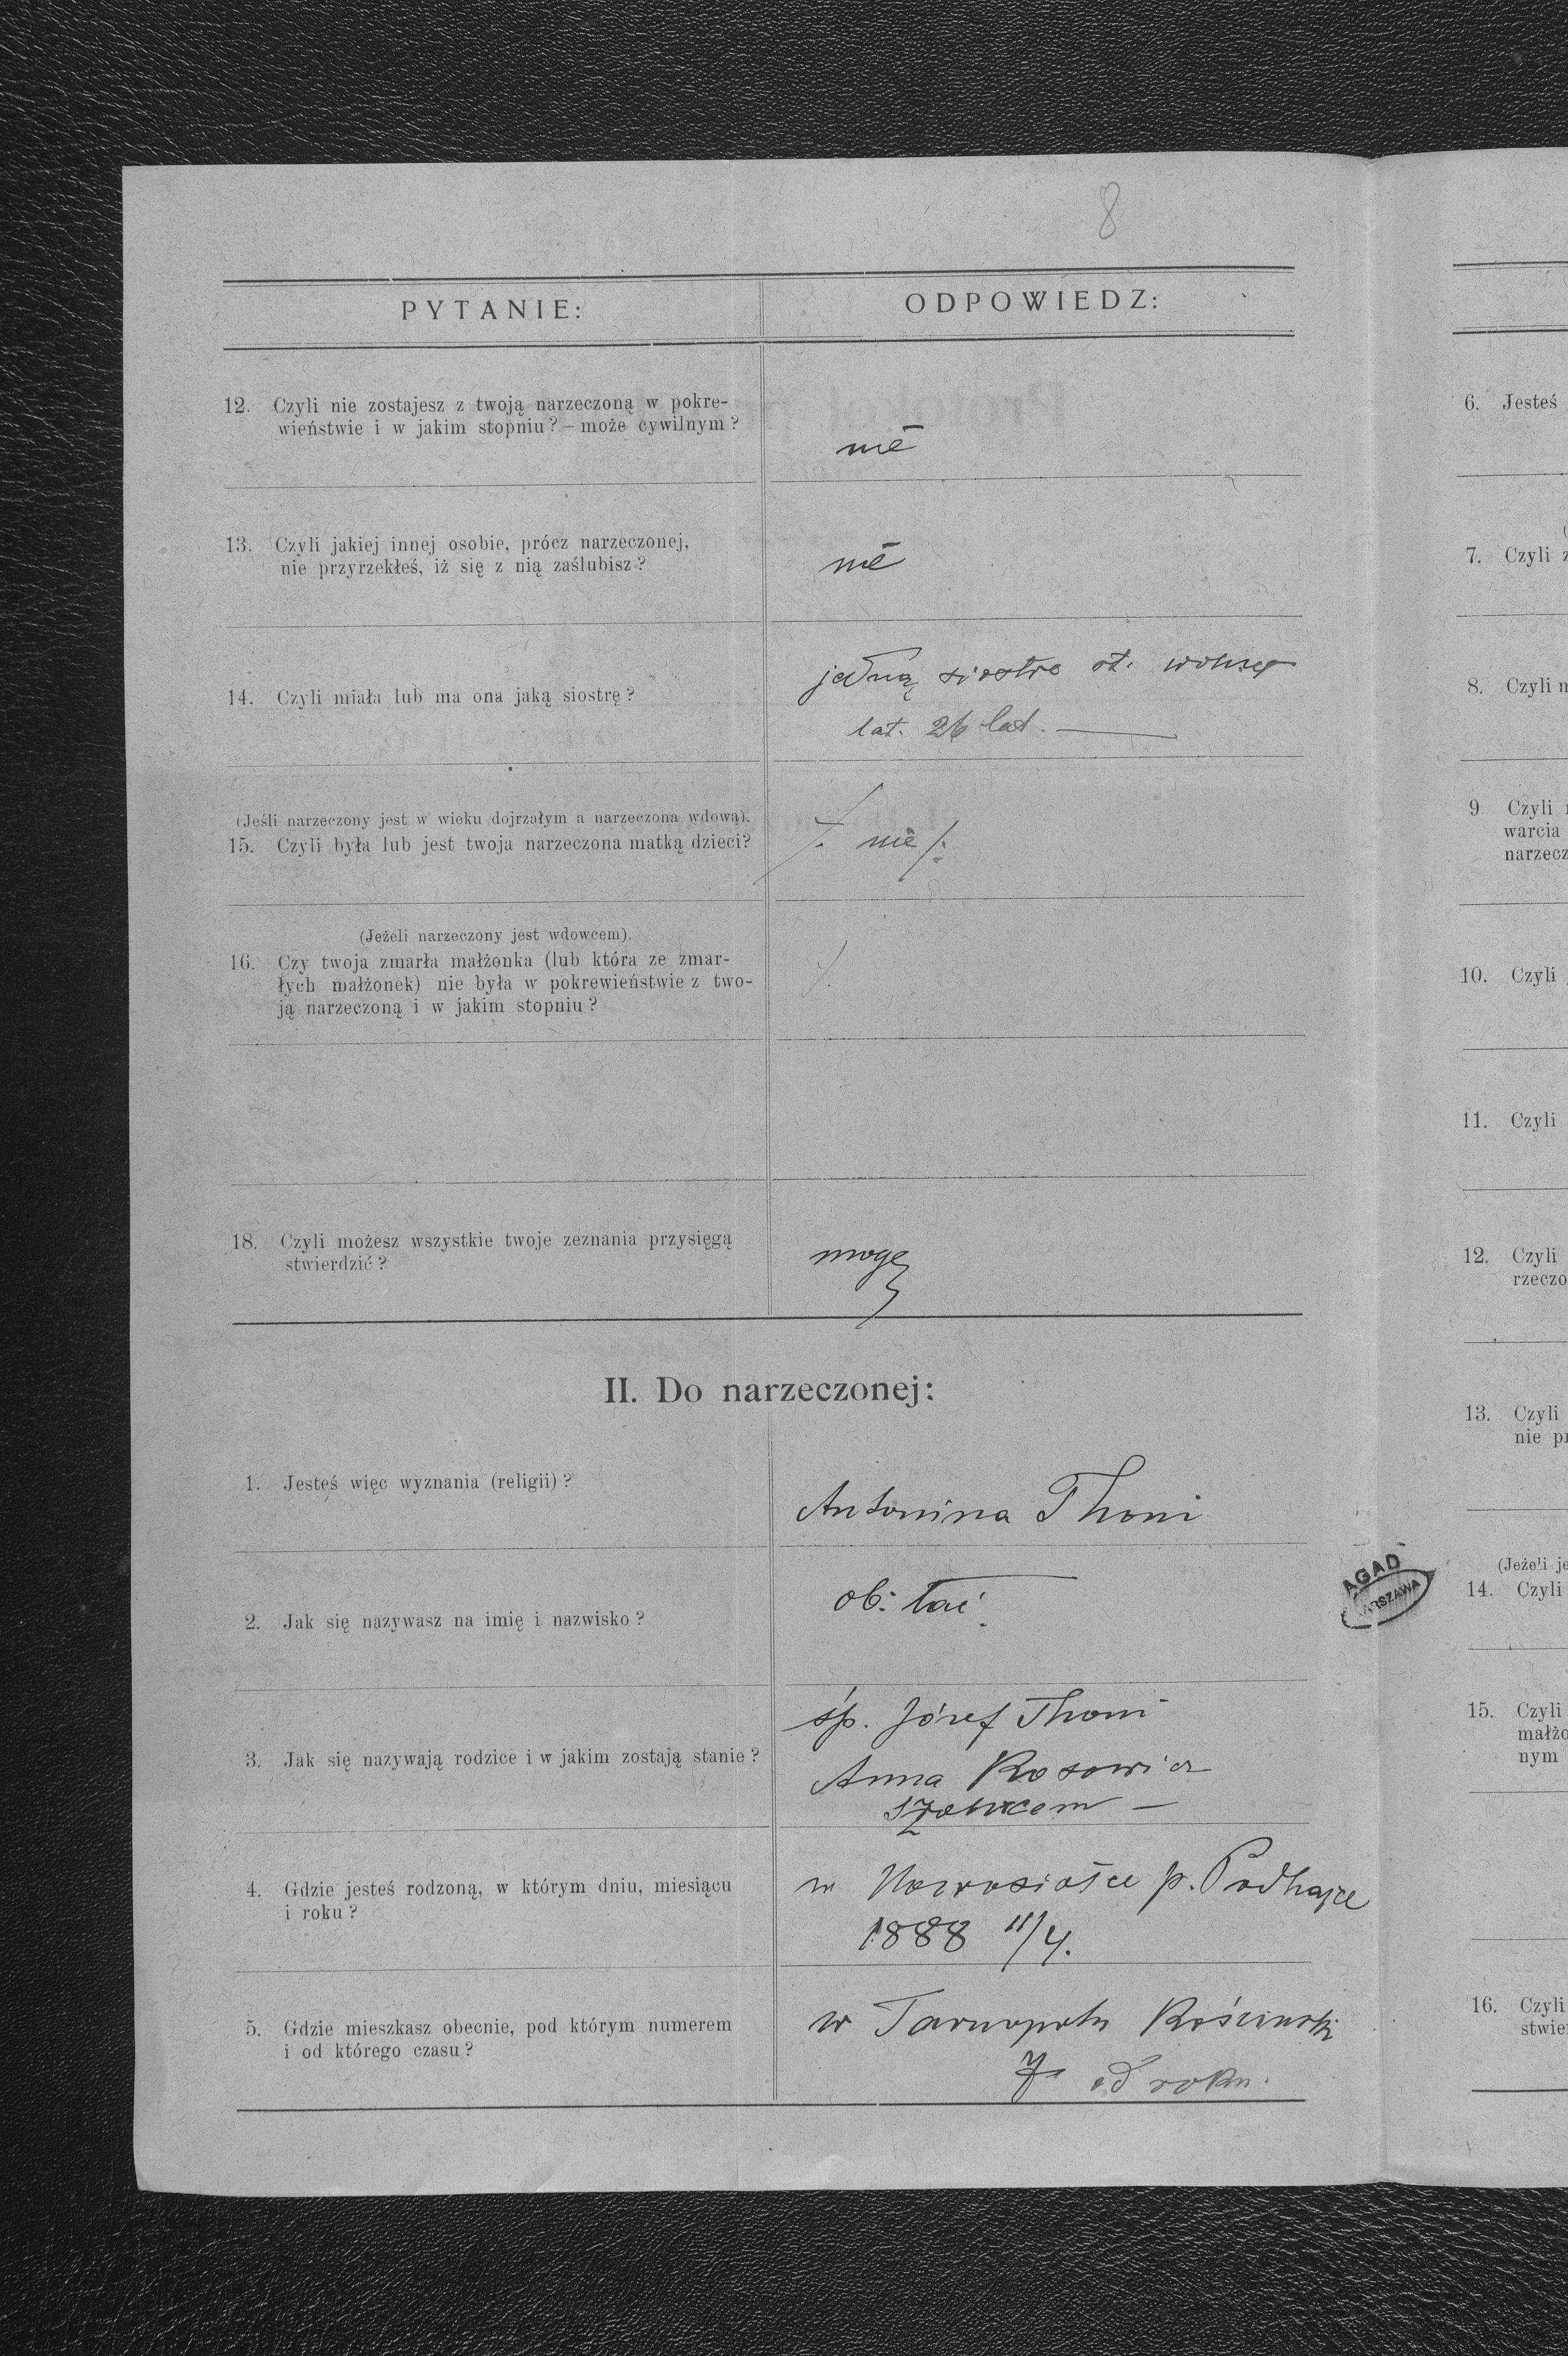 8
PYTANIE:
ODPOWIEDZ:
12. Czyli nie zostajesz z twoją narzeczoną w pokre-
wieństwie i w jakim stopniu? – może cywilnym?
nie
13. Czyli jakiej innej osobie, prócz narzeczonej,
nie przyrzekłeś, iż się z nią zaślubisz?
nie
14. Czyli miała lub ma ona jaką siostrę?
jedną siostrę st.
lat. 26 lat.
(Jeśli narzeczony jest w wieku dojrzałym a narzeczona wdową).
15. Czyli była lub jest twoja narzeczona matką dzieci?
nie
(Jeżeli narzeczony jest wdowcem).
16. Czy twoja zmarła małżonka (lub która ze zmar-
łych małżonek) nie była w pokrewieństwie z two-
ją narzeczoną i w jakim stopniu?
18. Czyli możesz wszystkie twoje zeznania przysięgą
stwierdzić?
mogę
II. Do narzeczonej:
1. Jesteś więc wyznania (religii)?
Antonina Thoni
2. Jak się nazywasz na imię i nazwisko?
ob: łać.
3. Jak się nazywają rodzice i w jakim zostają stanie?
śp. Józef Thoni
Anna
4. Gdzie jesteś rodzoną, w którym dniu, miesiącu
i roku?
w Nowosiołce p. Podhajce
1888 11/4.
5. Gdzie mieszkasz obecnie, pod którym numerem
i od którego czasu?
w Tarnopolu
7 od roku.
AGAD
WARSZAWA
6. Jesteś
7. Czyli z
8. Czyli n
9 Czyli
warcia
narzecz
10. Czyli
11. Czyli
12. Czyli
rzeczo
13. Czyli
nie pr
(Jeżeli je
14. Czyli
15. Czyli
małżo
nym
16. Czyli
stwier